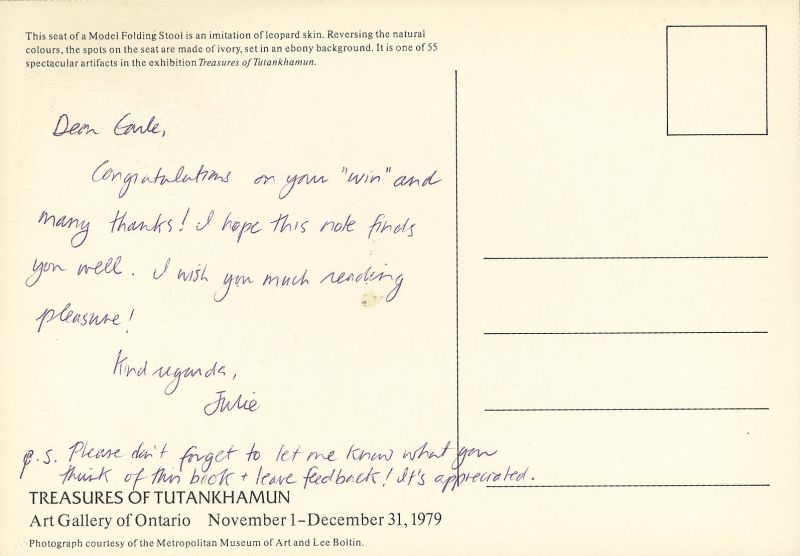 This seat of a Model Folding Stool is an imitation of leopard skin. Reversing the natural
colours, the spots on the seat are made of ivory, set in an ebony background. It is one of 55
spectacular artifacts in the exhibition Treasures of Tutankhamun.
Dear Earle,
Congratulations on your "win" and
many thanks! I hope this note finds
you well. I wish you much reading
pleasure!
Kind regards,
Julie
p.s. Please don't forget to let me know what you
think of this book + leave feedback! It's appreciated.
TREASURES OF TUTANKHAMUN
Art Gallery of Ontario November 1–December 31, 1979
Photograph courtesy of the Metropolitan Museum of Art and Lee Boltin.